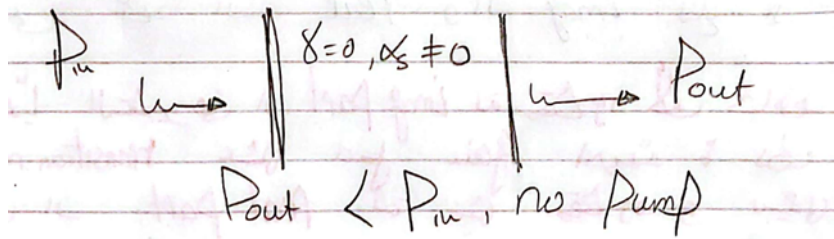 Pin γ=0, αs ≠0 Pout
Pout < Pin, no pump